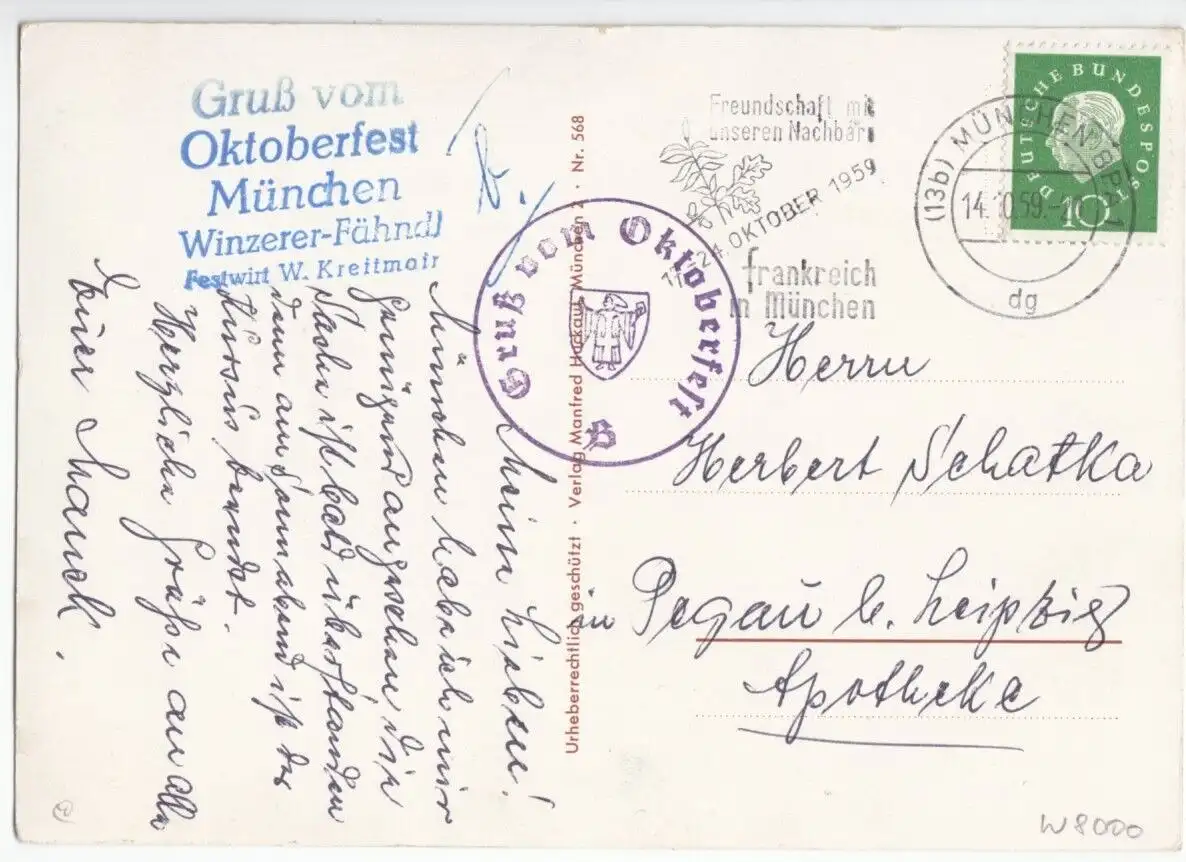 Gruß vom
Oktoberfest
München
Winzerer-Fähndl
Festwirt W. Kreitmair
Gruß vom Oktoberfest
B
Freundschaft mit
unseren Nachbarn
24. OKTOBER 1959
Frankreich
in München
(13b) MÜNCHEN
14.10.59.
dg
DEUTSCHE BUNDESPOST
10
Meine Lieben!
München habe ich mir
genügend angesehen die
Sache ist bald überstanden
denn am Sonnabend ist der
Kursus beendet.
Herzliche Grüße an alle
Euer
Urheberrechtlich geschützt · Verlag Manfred Huckauf München 2 · Nr. 568
Herrn
Herbert Schatka
in Pegau b. Leipzig
Apotheke
W8000